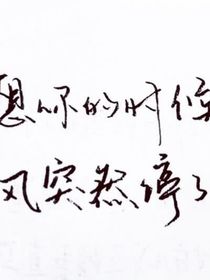 想你的时候
风突然停了